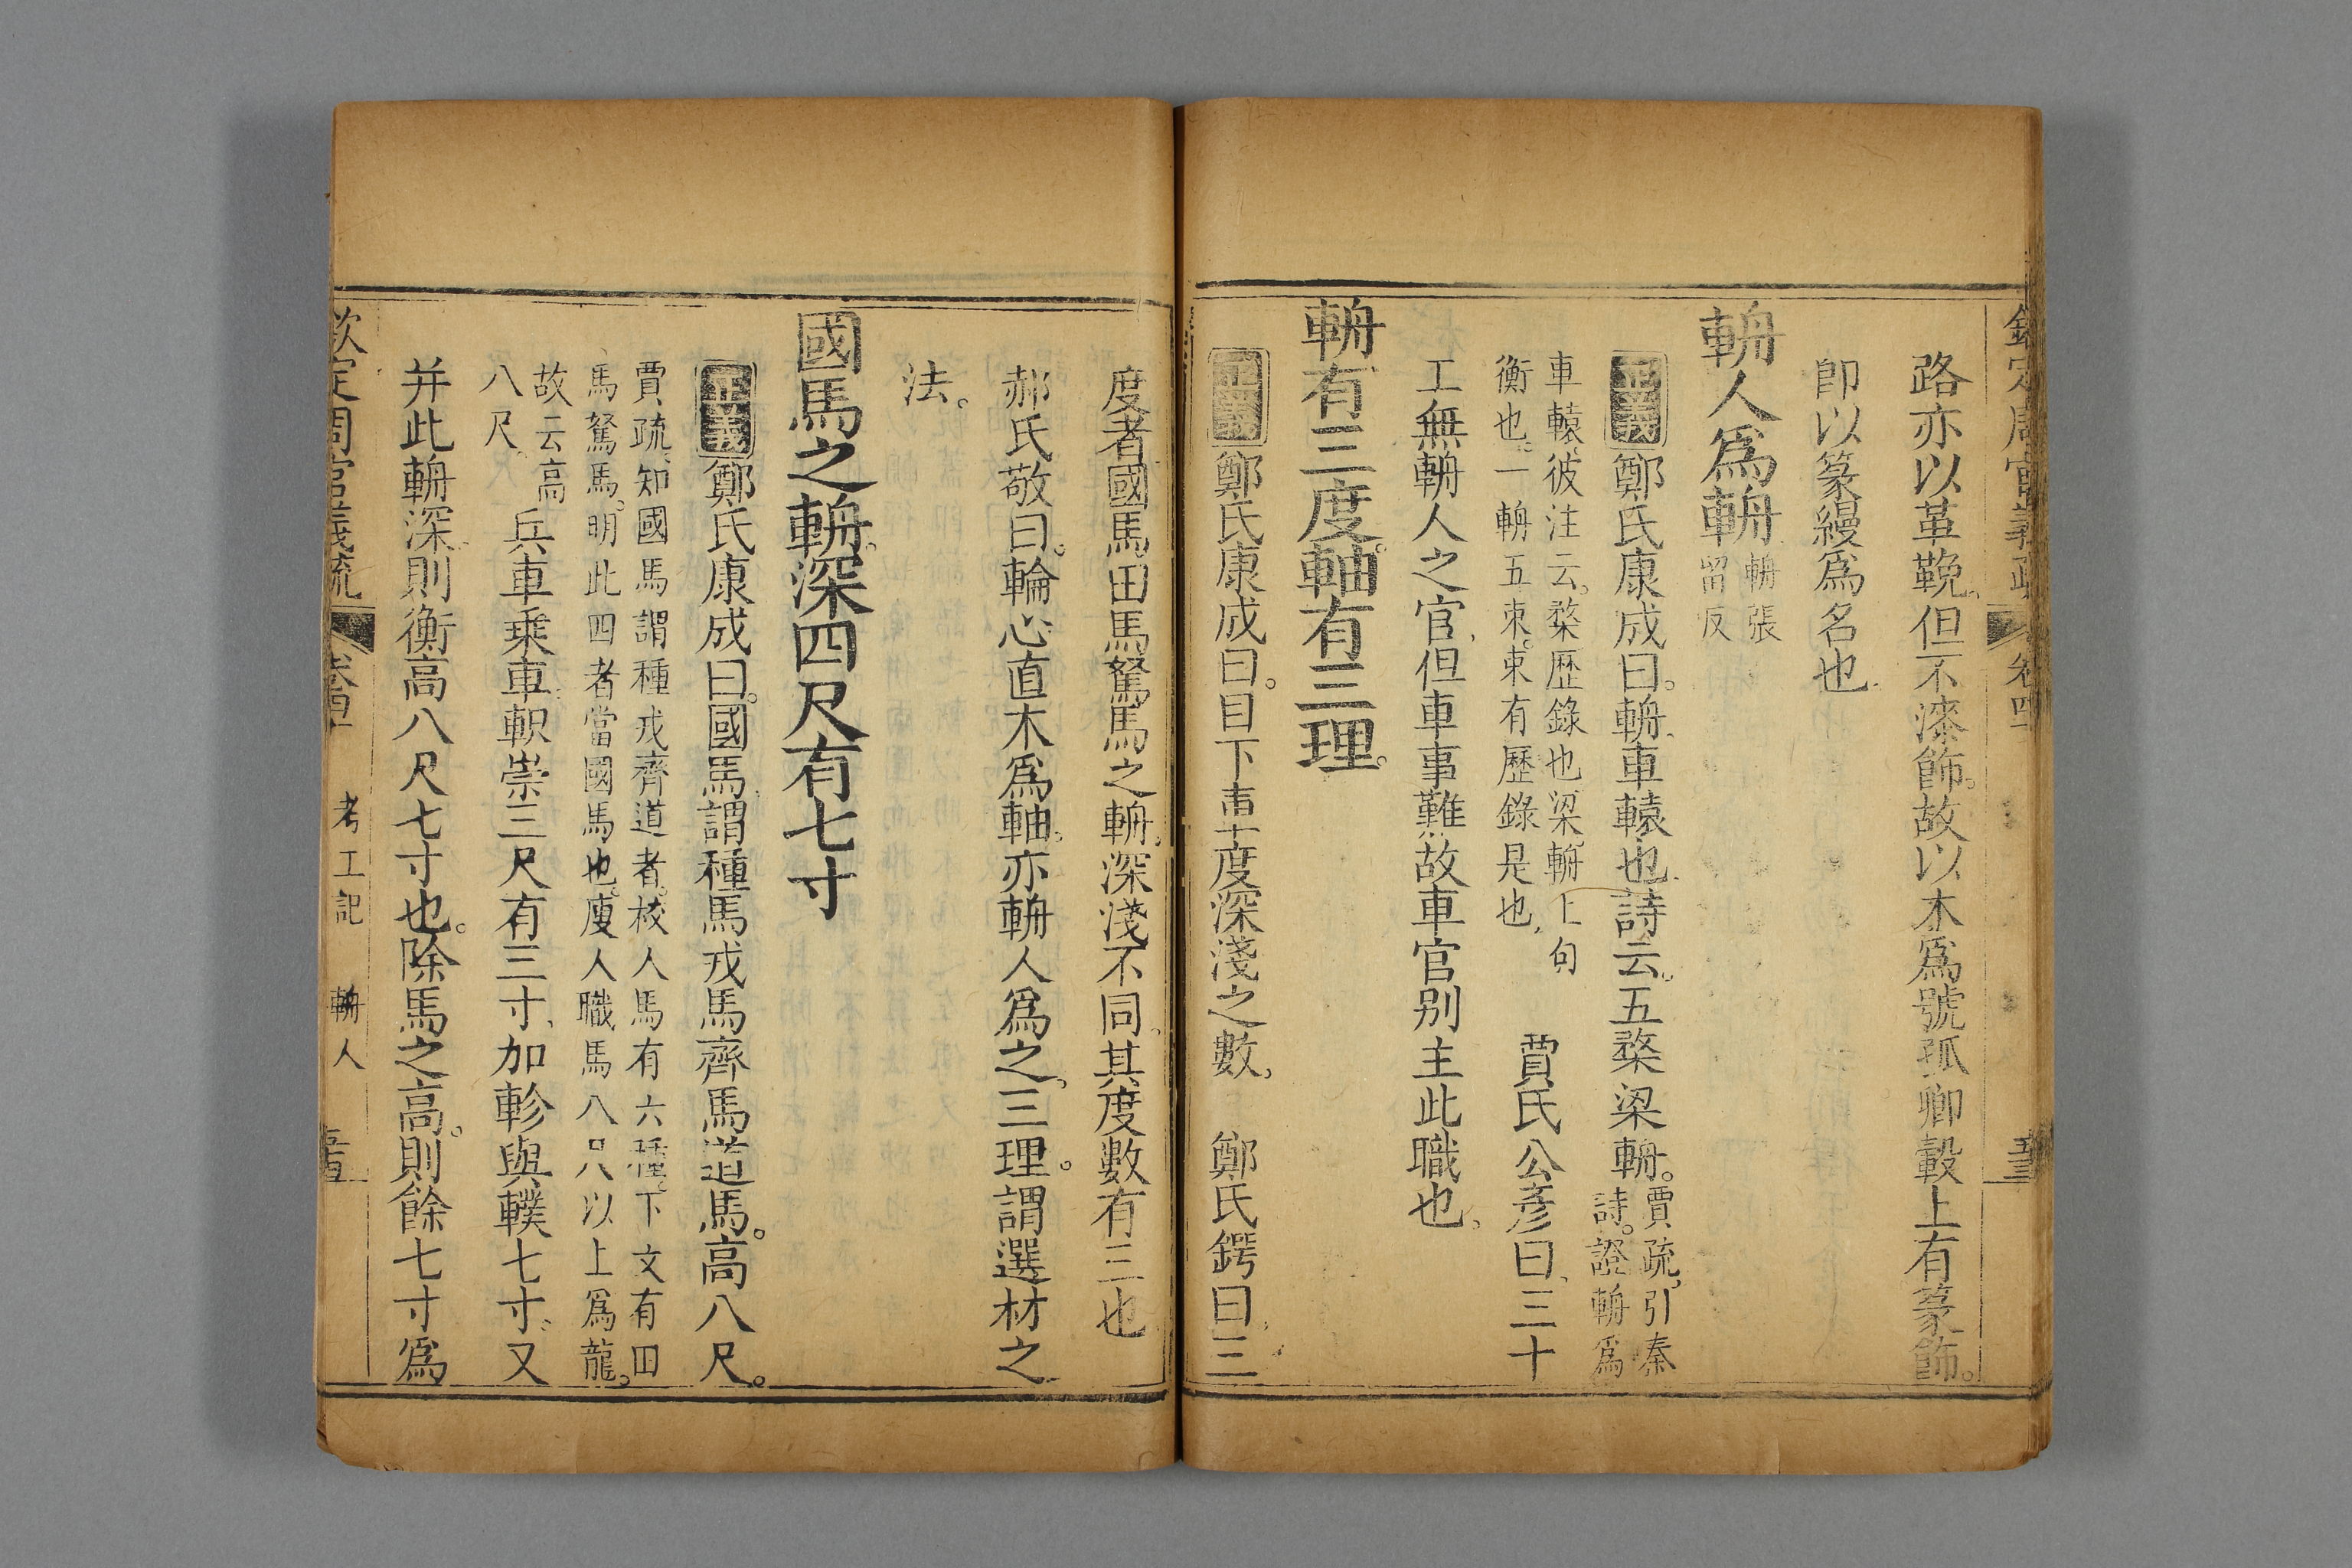 欽定周官義疏 卷四十
路亦以革鞔。但不漆飾。故以木爲號孤卿轂上有篆飾。
卽以篆縵爲名也
輈人爲輈輈張留反
正義鄭氏康成曰。輈車轅也詩云。五楘梁輈。賈疏。引秦詩。證輈爲
車轅。彼注云。楘歷錄也梁輈上句衡也。一輈五束。束有歷錄是也 賈氏公彥曰三十
工無輈人之官但車事難故車官別主此職也。
輈有三度軸有三理。
正義鄭氏康成曰。目下事度深淺之數。 鄭氏鍔曰三
度者國馬田馬駑馬之輈。深淺不同。其度數有三也
郝氏敬曰。輪心直木爲軸。亦輈人爲之。三理。謂選材之
法。
國馬之輈深四尺有七寸
正義鄭氏康成曰。國馬謂種馬戎馬齊馬道馬。高八尺。
賈疏知國馬謂種戎齊道者。校人馬有六種。下文有田
馬駑馬。明此四者當國馬也。廋人職馬八尺以上爲龍。
故云高八尺 兵車乗車軹崇三尺有三寸。加軫與轐七寸。又
并此輈深則衡高八尺七寸也。除馬之高。則餘七寸爲
欽定周官義疏 考工記 輈人